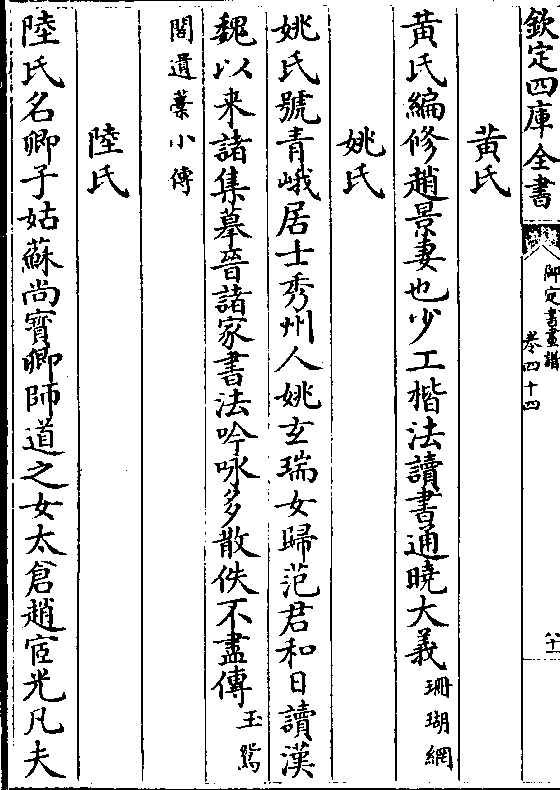 欽定四庫全書
御定書畫譜
卷四十四
黄氏
黄氏編修趙景妻也少工楷法讀書通曉大義珊瑚網
姚氏
姚氏號青峨居士秀州人姚玄瑞女歸范君和日讀漢
魏以来諸集摹晉諸家書法吟咏多散佚不盡傳玉鴛
閣遺藁小傳
陸氏
陸氏名卿子姑蘇尚寳卿師道之女太倉趙宧光凡夫